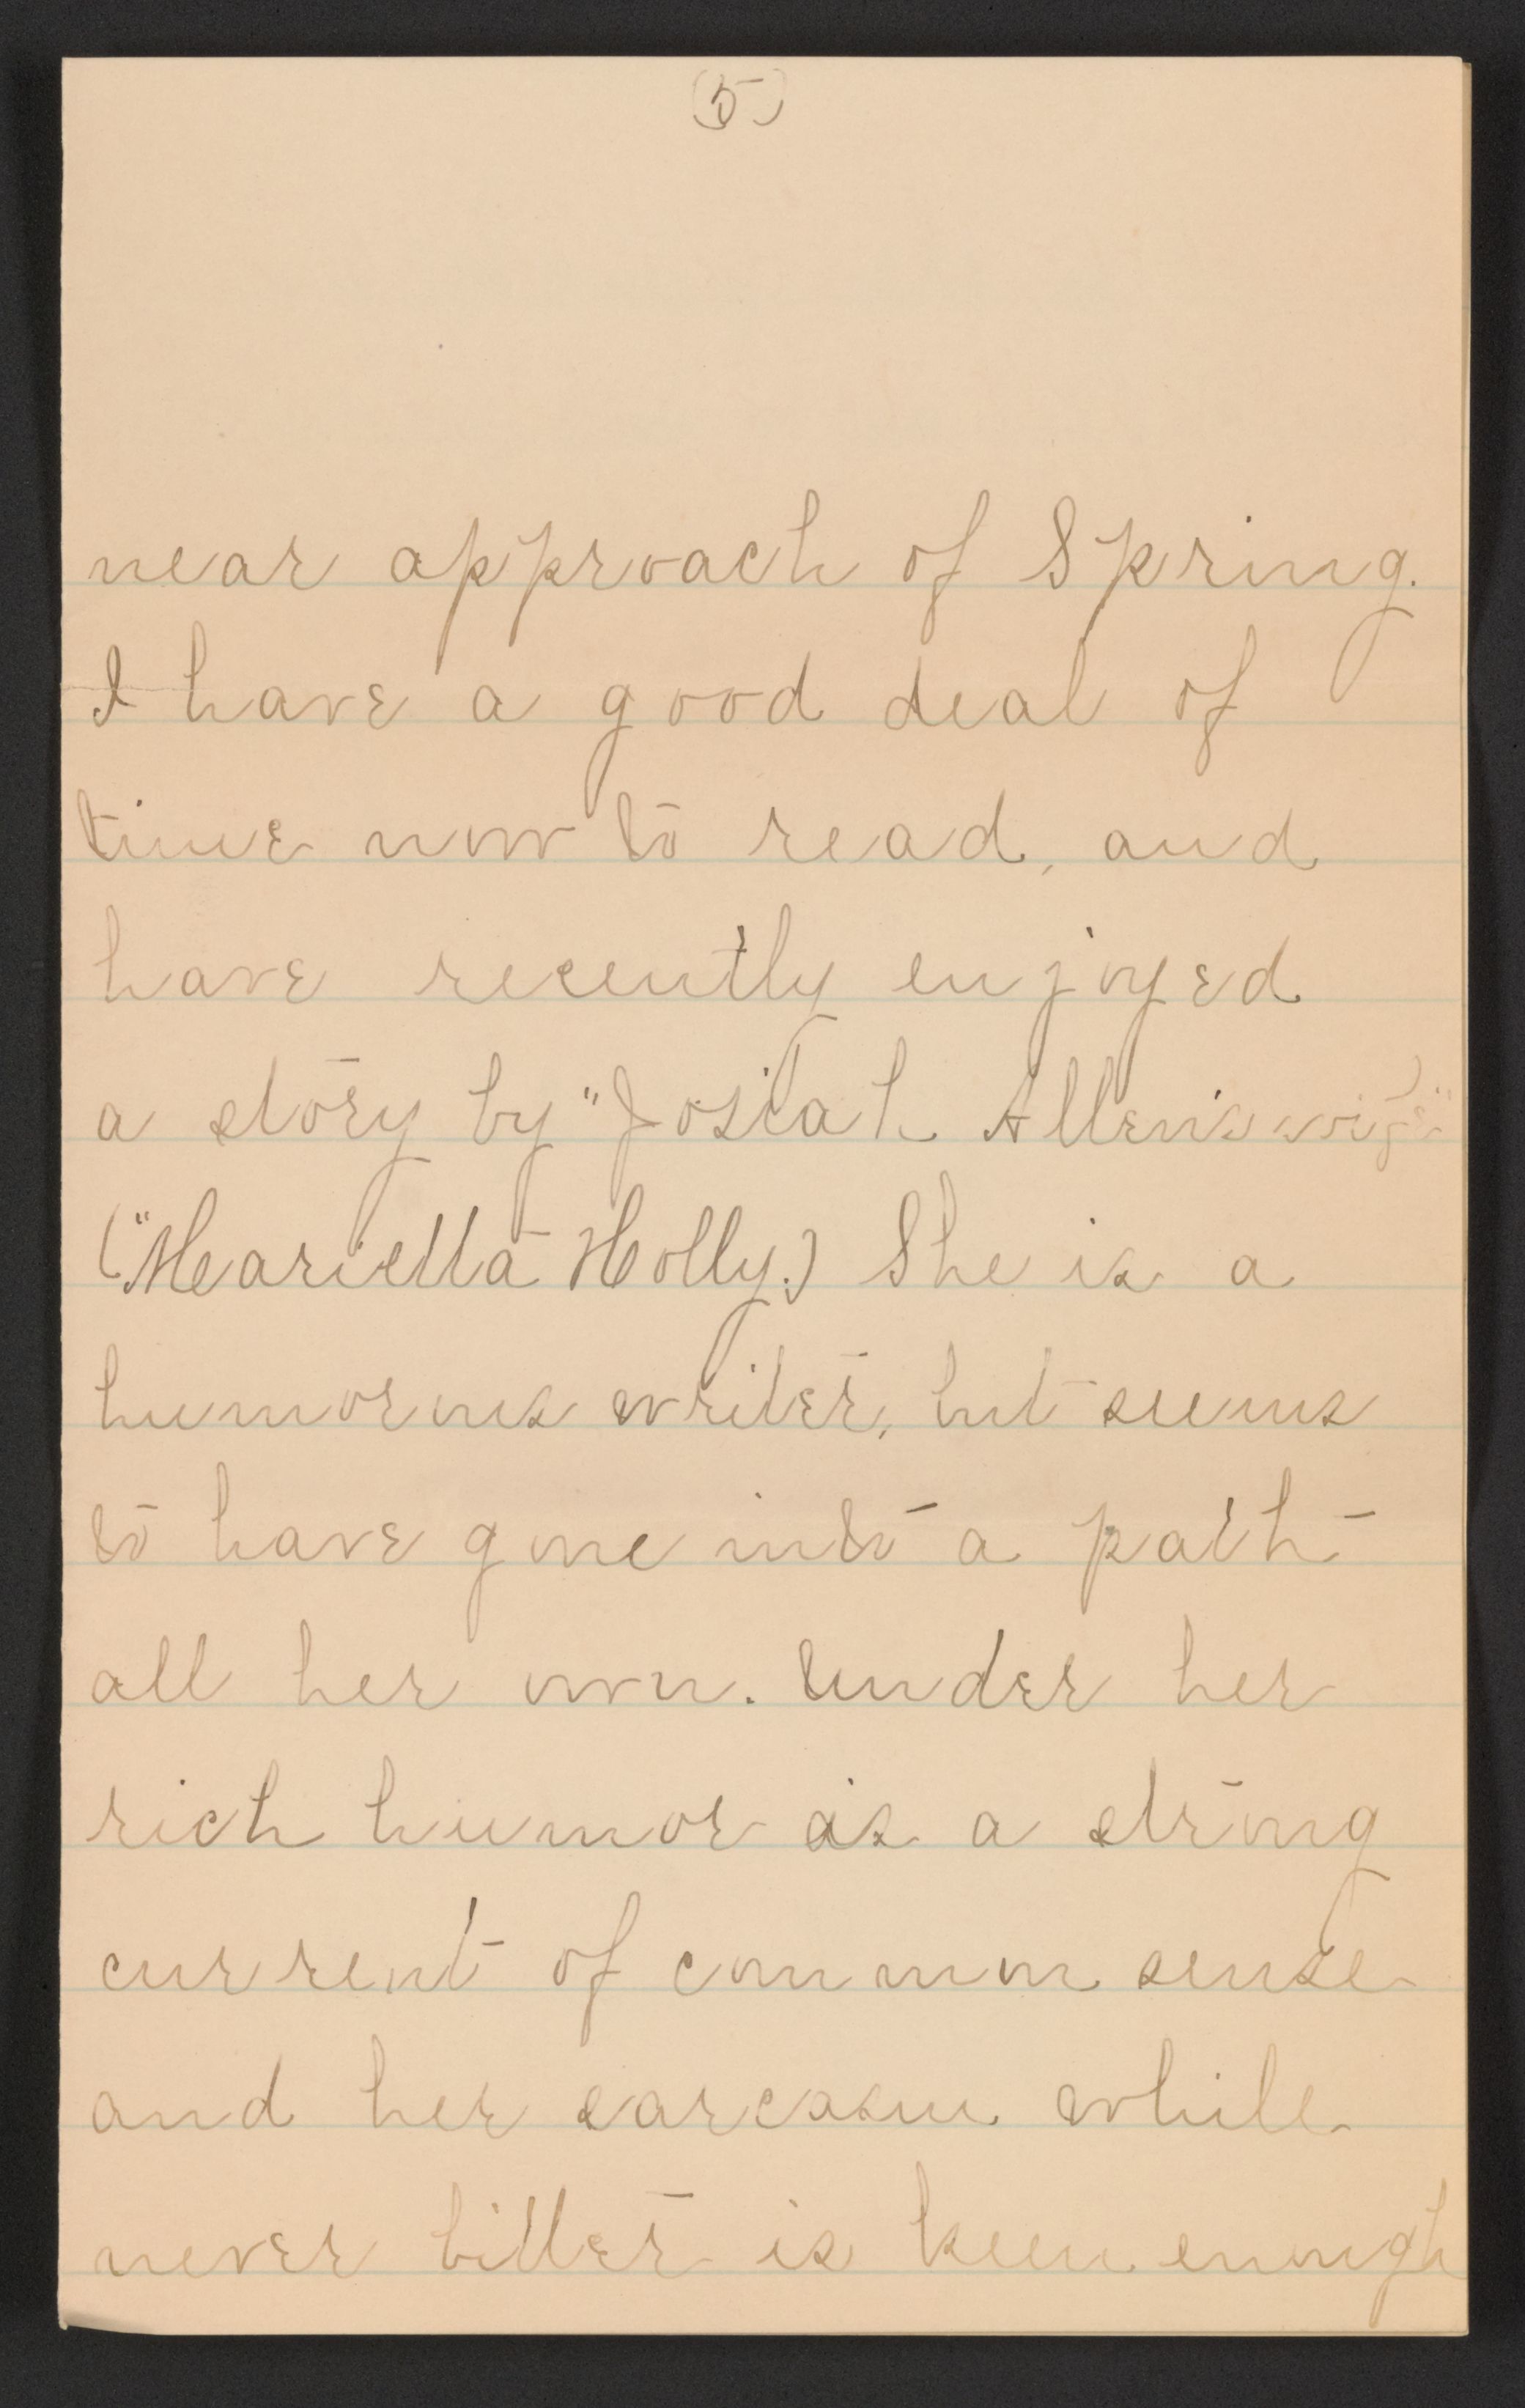 (5)
near approach of Spring.
I have a good deal of
time now to read, and
have recently enjoyed
a story by "Josiah Allen's wife"
("Marietta Holly.) She is a
humorous writer, but seems
to have gone into a path
all her own. Under her
rich humor is a strong
current of common sense
and her sarcasm while
never bitter is keen enough